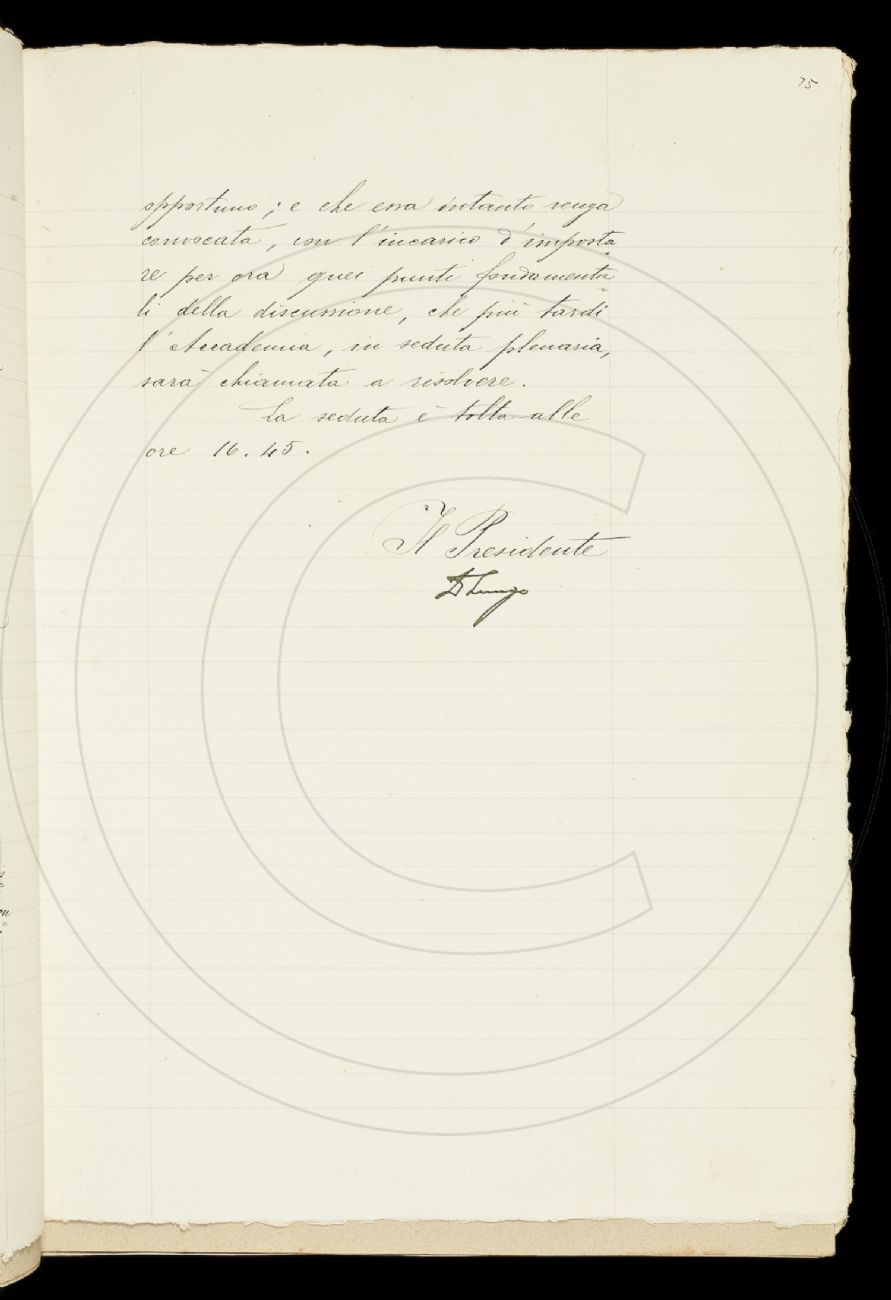 75
opportuno; e che essa intanto venga
convocata, con l'incarico d'imposta=
re per ora quei punti fondamenta=
li della discussione, che più tardi
l'Accademia, in seduta plenaria,
sarà chiamata a risolvere.
La seduta è tolta alle
ore 16.45.
Il Presidente